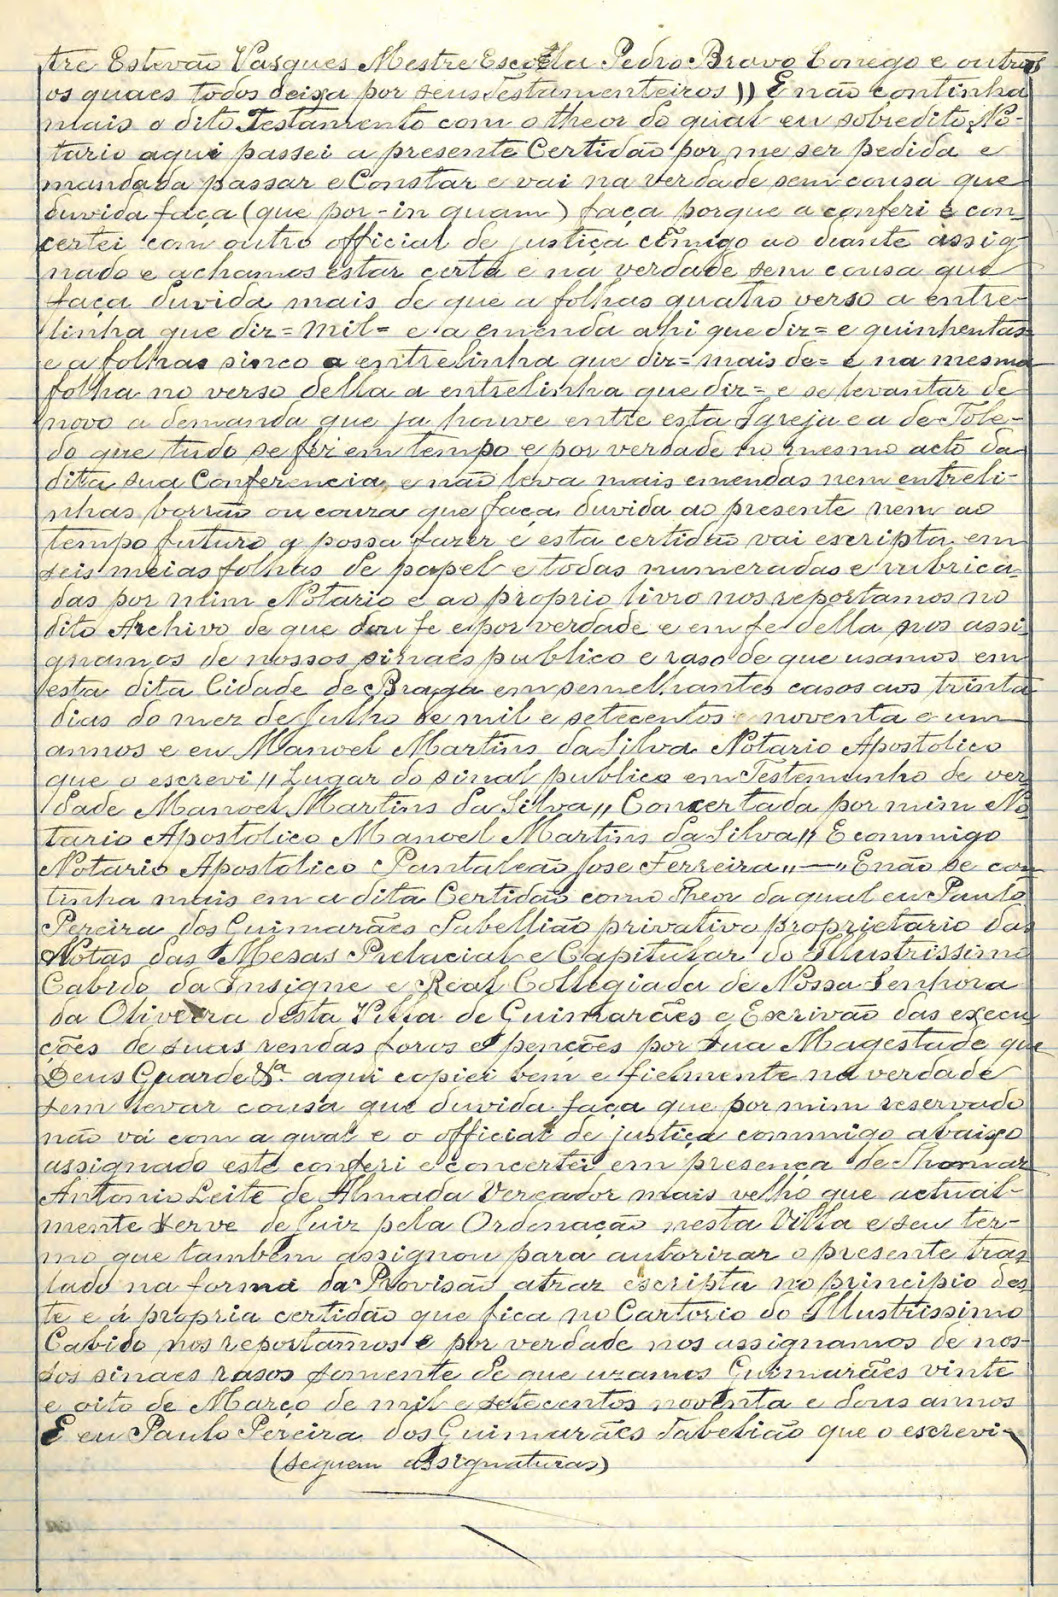 tre Estevão Vasques Mestre Escolla Pedro Bravo Conego e outros
os quaes todos deixa por seus Testamenteiros )) E não continha
mais o dito Testamento com o theor do qual eu sobredito No-
tario aqui passei a presente Certidão por me ser pedida e
mandada passar e Constar e vai na verdade sem cousa que
duvida faça (que por-in quam) faça porque a conferi e con-
certei com outro official de justiça cõmigo ao deante assig-
nado e achamos estar certa e na verdade sem cousa que
faça duvida mais de que a folhas quatro verso a entre-
linha que diz=mil= e a emenda ahi que diz= e quinhentas
e a folhas sinco a entrelinha que diz=mais de= e na mesma
folha no verso della a entrelinha que diz= e se levantar de
novo a demanda que ja houve entre esta Igreja e a de Tole-
do que tudo se fez em tempo e por verdade no mesmo acto da
dita sua Conferencia e não leva mais emendas nem entreli-
nhas borrão ou couza que faça duvida ao presente nem ao
tempo futuro q possa fazer e esta certidão vai escripta em
seis meias folhas de papel e todas numeradas e rubrica-
das por mim Notario e ao proprio livro nos reportamos no
dito Archivo de que dou fe e por verdade e em fe della nos assi
gnamos de nossos sinaes publico e raso de que usamos em
esta dita Cidade de Braga em semelhantes casos aos trinta
dias do mez de Julho de mil e setecentos e noventa e um
annos e eu Manoel Martins da Silva Notario Apostolico
que o escrevi ,, Lugar do sinal publico em Testemunho de ver
dade Manoel Martins da Silva ,, Concertada por mim No
tario Apostolico Manoel Martins da Silva ,, E commigo
Notario Apostolico Pantaleão Jose Ferreira ,,—,, E não se con
tinha mais em a dita Certidão com o Theor da qual eu Paulo
Pereira dos Guimarães Tabellião privativo proprietario das
Notas das Mesas Prelacial e Capitular do Illustrissimo
Cabido da Insigne e Real Collegiada de Nossa Senhora
da Oliveira desta Villa de Guimarães e Escrivão das execu
ções de suas rendas foros e penções por Sua Magestade que
Deus Guarde &ª. aqui copiei bem e fielmente na verdade
sem levar cousa que duvida faça que por mim reservado
não vá com a qual e o official de justiça commigo abaixo
assignado este conferi e concertei em presença de Thomaz
Antonio Leite de Almada Vereador mais velho que actual-
mente serve de Juiz pela Ordenação nesta Villa e seu ter-
mo que tambem assignou para autorizar o presente tras
lado na forma da Provisão atraz escripta no principio des
te e á propria certidão que fica no Cartorio do Illustrissimo
Cabido nos reportamos e por verdade nos assignamos de nos-
sos sinaes rasos somente de que uzamos Guimarães vinte
e oito de Março de mil e setecentos noventa e dous annos
E eu Paulo Pereira dos Guimarães Tabelião que o escrevi
(seguem assignaturas)